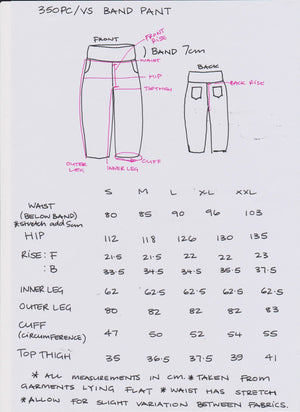 350PC/VS BAND PANT
FRONT
FRONT RISE
) BAND 7cm
WAIST
BACK
HIP
BACK RISE
TOP THIGH
OUTER LEG
INNER LEG
CUFF
S M L XL XXL
WAIST (BELOW BAND) 80 85 90 96 103
*stretch add 5cm
HIP 112 118 126 130 135
RISE: F 21.5 21.5 22 22 23
: B 33.5 34.5 34.5 35.5 37.5
INNER LEG 62 62.5 62.5 62.5 62.5
OUTER LEG 80 82 82 82 83
CUFF (CIRCUMFERENCE) 47 50 52 54 55
TOP THIGH 35 36.5 37.5 39 41
* ALL MEASUREMENTS IN CM. * TAKEN FROM
GARMENTS LYING FLAT * WAIST HAS STRETCH
* ALLOW FOR SLIGHT VARIATION BETWEEN FABRICS.